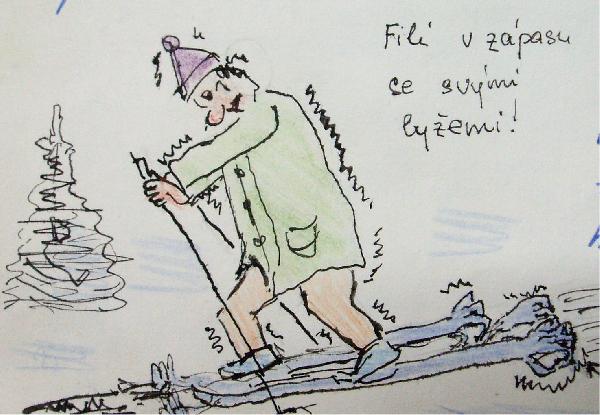 Filí v zápasu
se svými
lyžemi!